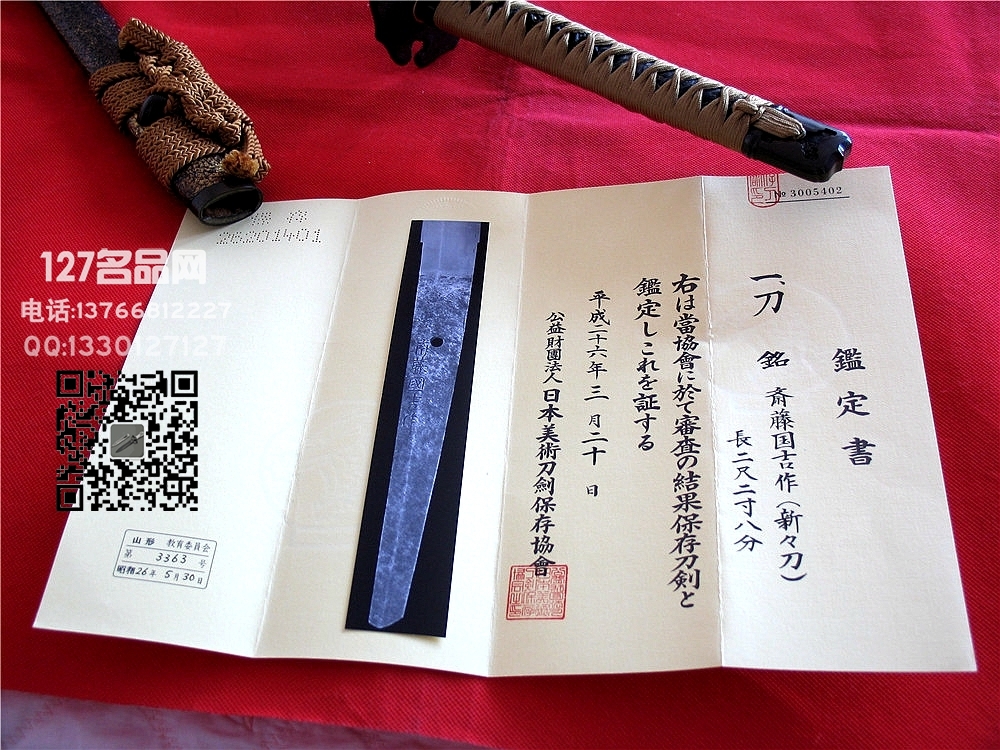 № 3005402
鑑定書
一、刀 銘 斎藤国吉作（新々刀）
長二尺二寸八分
右は當協會に於て審査の結果保存刀剣と
鑑定しこれを証する
平成二十六年三月二十日
公益財團法人日本美術刀劍保存協會
26201401
127名品网
电话:13766812227
QQ:1330127127
山形 教育委員会
第 3363 号
昭和26年 5月30日